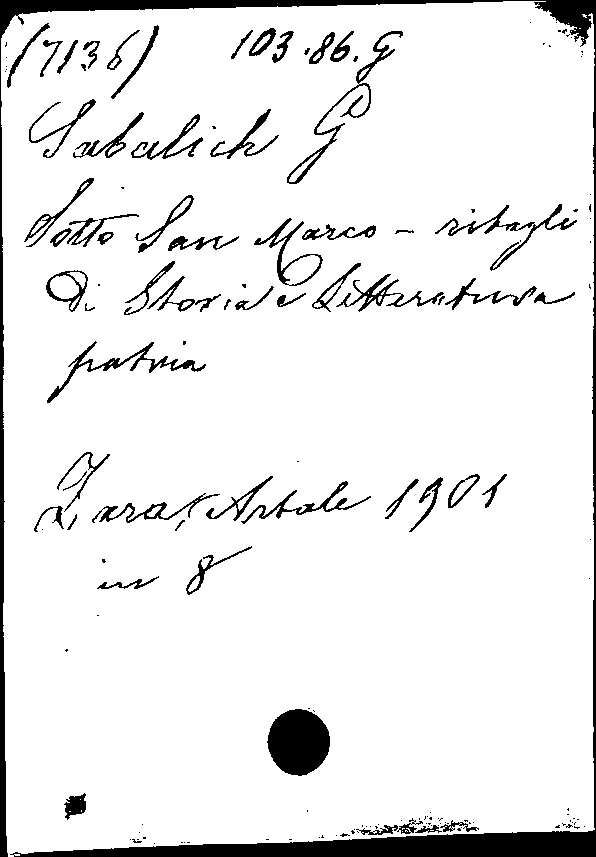 (7136) 103.86.G
Sabalich G
Sotto San Marco - ritagli
di Storia e Letteratura
patria
Zara, Artale 1901
in 8